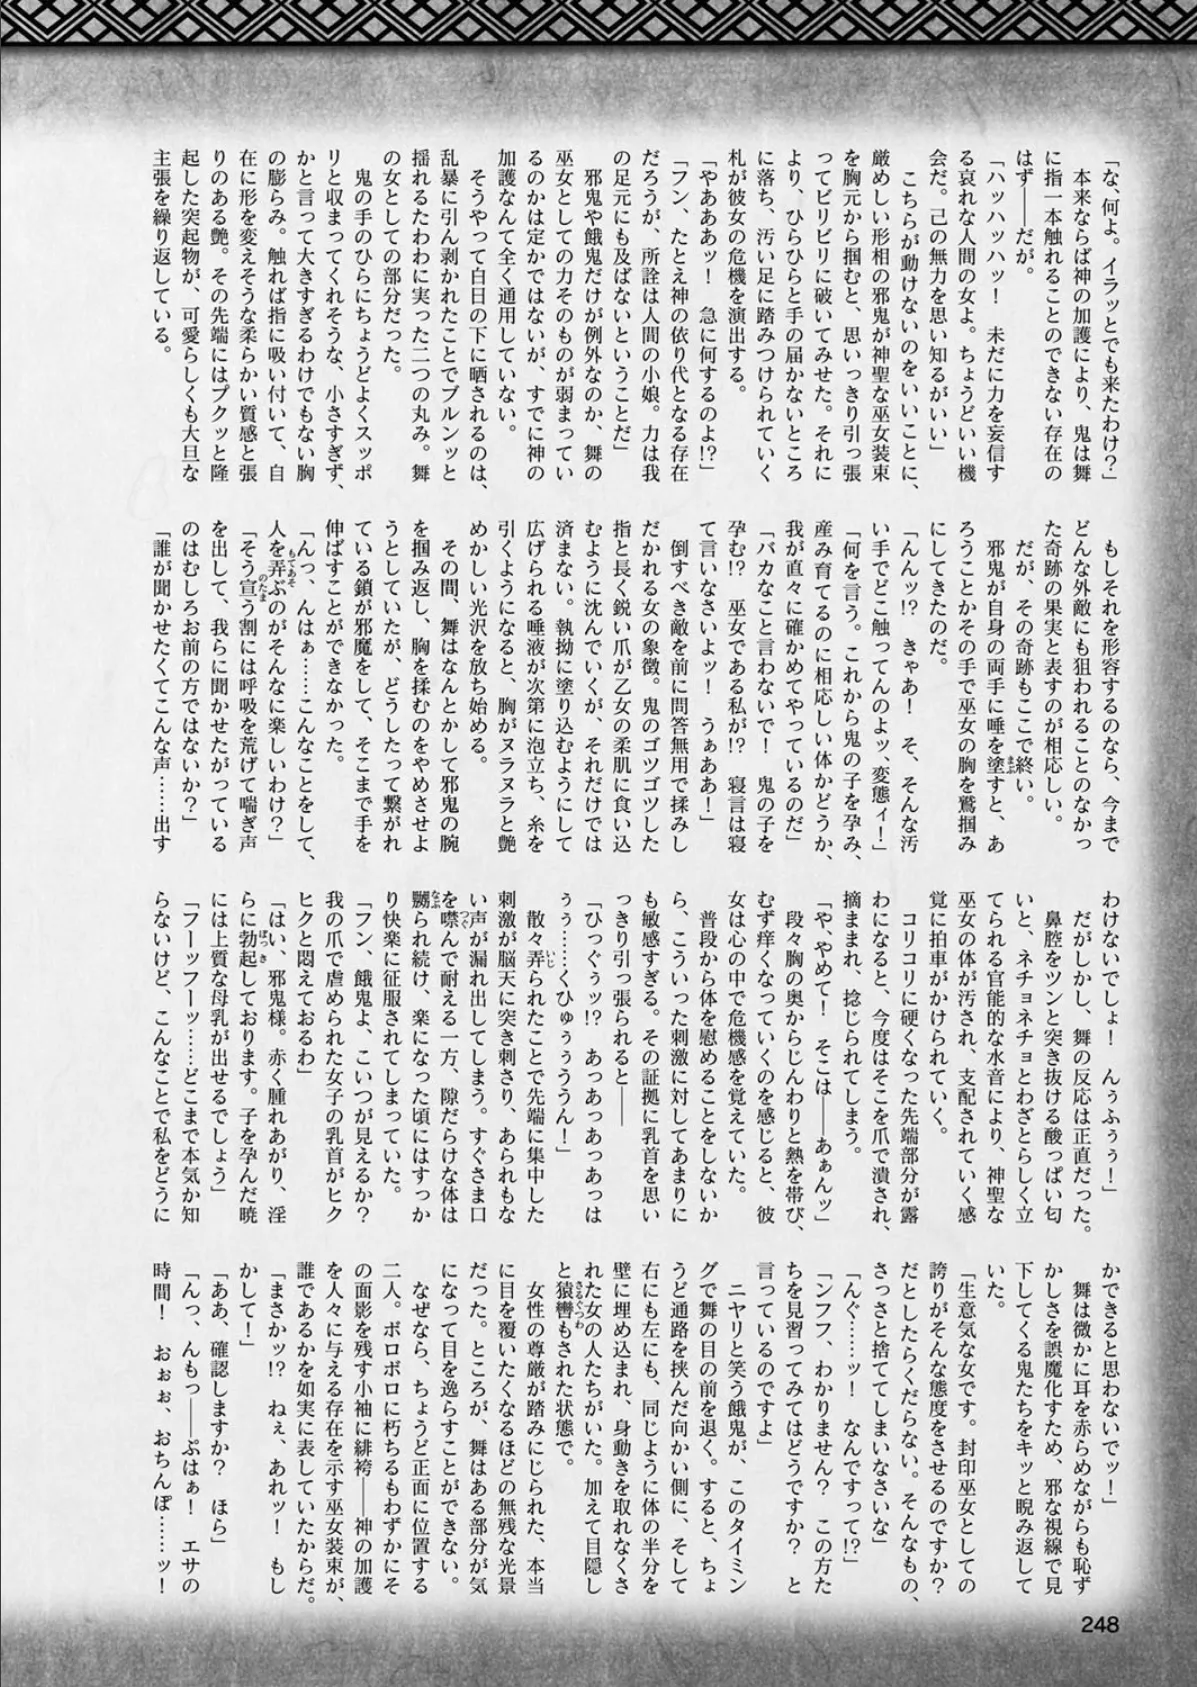 「な、何よ。イラッとでも来たわけ？」
　本来ならば神の加護により、鬼は舞
に指一本触れることのできない存在の
はず――だが。
「ハッハッハッ！　未だに力を妄信す
る哀れな人間の女よ。ちょうどいい機
会だ。己の無力を思い知るがいい」
　こちらが動けないのをいいことに、
厳めしい形相の邪鬼が神聖な巫女装束
を胸元から掴むと、思いっきり引っ張
ってビリビリに破いてみせた。それに
より、ひらひらと手の届かないところ
に落ち、汚い足に踏みつけられていく
札が彼女の危機を演出する。
「やあああッ！　急に何するのよ!?」
「フン、たとえ神の依り代となる存在
だろうが、所詮は人間の小娘。力は我
の足元にも及ばないということだ」
　邪鬼や餓鬼だけが例外なのか、舞の
巫女としての力そのものが弱まってい
るのかは定かではないが、すでに神の
加護なんて全く通用していない。
　そうやって白日の下に晒されるのは、
乱暴に引ん剥かれたことでブルンッと
揺れるたわわに実った二つの丸み。舞
の女としての部分だった。
　鬼の手のひらにちょうどよくスッポ
リと収まってくれそうな、小さすぎず、
かと言って大きすぎるわけでもない胸
の膨らみ。触れば指に吸い付いて、自
在に形を変えそうな柔らかい質感と張
りのある艶。その先端にはプクッと隆
起した突起物が、可愛らしくも大旦な
主張を繰り返している。
　もしそれを形容するのなら、今まで
どんな外敵にも狙われることのなかっ
た奇跡の果実と表すのが相応しい。
　だが、その奇跡もここで終い。
　邪鬼が自身の両手に唾を塗すと、あ
ろうことかその手で巫女の胸を鷲掴み
にしてきたのだ。
「んんッ!?　きゃあ！　そ、そんな汚
い手でどこ触ってんのよッ、変態ィ！」
「何を言う。これから鬼の子を孕み、
産み育てるのに相応しい体かどうか、
我が直々に確かめてやっているのだ」
「バカなこと言わないで！　鬼の子を
孕む!?　巫女である私が!?　寝言は寝
て言いなさいよッ！　うぁああ！」
　倒すべき敵を前に問答無用で揉みし
だかれる女の象徴。鬼のゴツゴツした
指と長く鋭い爪が乙女の柔肌に食い込
むように沈んでいくが、それだけでは
済まない。執拗に塗り込むようにして
広げられる唾液が次第に泡立ち、糸を
引くようになると、胸がヌラヌラと艶
めかしい光沢を放ち始める。
　その間、舞はなんとかして邪鬼の腕
を掴み返し、胸を揉むのをやめさせよ
うとしていたが、どうしたって繋がれ
ている鎖が邪魔をして、そこまで手を
伸ばすことができなかった。
「んっ、んはぁ……こんなことをして、
人を弄ぶのがそんなに楽しいわけ？」
「そう宣う割には呼吸を荒げて喘ぎ声
を出して、我らに聞かせたがっている
のはむしろお前の方ではないか？」
「誰が聞かせたくてこんな声……出す
わけないでしょ！　んぅふぅぅ！」
　だがしかし、舞の反応は正直だった。
　鼻腔をツンと突き抜ける酸っぱい匂
いと、ネチョネチョとわざとらしく立
てられる官能的な水音により、神聖な
巫女の体が汚され、支配されていく感
覚に拍車がかけられていく。
　コリコリに硬くなった先端部分が露
わになると、今度はそこを爪で潰され、
摘ままれ、捻じられてしまう。
「や、やめて！　そこは――あぁんッ」
　段々胸の奥からじんわりと熱を帯び、
むず痒くなっていくのを感じると、彼
女は心の中で危機感を覚えていた。
　普段から体を慰めることをしないか
ら、こういった刺激に対してあまりに
も敏感すぎる。その証拠に乳首を思い
っきり引っ張られると――
「ひっぐぅッ!?　あっあっあっあっは
ぅぅ……くひゅぅぅううん！」
　散々弄られたことで先端に集中した
刺激が脳天に突き刺さり、あられもな
い声が漏れ出してしまう。すぐさま口
を噤んで耐える一方、隙だらけな体は
嬲られ続け、楽になった頃にはすっか
り快楽に征服されてしまっていた。
「フン、餓鬼よ、こいつが見えるか？
我の爪で虐められた女子の乳首がヒク
ヒクと悶えておるわ」
「はい、邪鬼様。赤く腫れあがり、淫
らに勃起しております。子を孕んだ暁
には上質な母乳が出せるでしょう」
「フーッフーッ……どこまで本気か知
らないけど、こんなことで私をどうに
かできると思わないでッ！」
　舞は微かに耳を赤らめながらも恥ず
かしさを誤魔化すため、邪な視線で見
下してくる鬼たちをキッと睨み返して
いた。
「生意気な女です。封印巫女としての
誇りがそんな態度をさせるのですか？
だとしたらくだらない。そんなもの、
さっさと捨ててしまいなさいな」
「んぐ……ッ！　なんですって!?」
「ンフフ、わかりません？　この方た
ちを見習ってみてはどうですか？　と
言っているのですよ」
　ニヤリと笑う餓鬼が、このタイミン
グで舞の目の前を退く。すると、ちょ
うど通路を挟んだ向かい側に、そして
右にも左にも、同じように体の半分を
壁に埋め込まれ、身動きを取れなくさ
れた女の人たちがいた。加えて目隠し
と猿轡もされた状態で。
　女性の尊厳が踏みにじられた、本当
に目を覆いたくなるほどの無残な光景
だった。ところが、舞はある部分が気
になって目を逸らすことができない。
　なぜなら、ちょうど正面に位置する
二人。ボロボロに朽ちるもわずかにそ
の面影を残す小袖に緋袴――神の加護
を人々に与える存在を示す巫女装束が、
誰であるかを如実に表していたからだ。
「まさかッ!?　ねぇ、あれッ！　もし
かして！」
「ああ、確認しますか？　ほら」
「んっ、んもっ――ぷはぁ！　エサの
時間！　おぉぉ、おちんぽ……ッ！
248